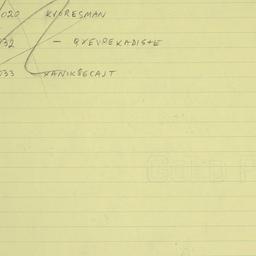 020 KVORESMAN
032 — QXEVREKADISTE
033 XANIKŠECAJT